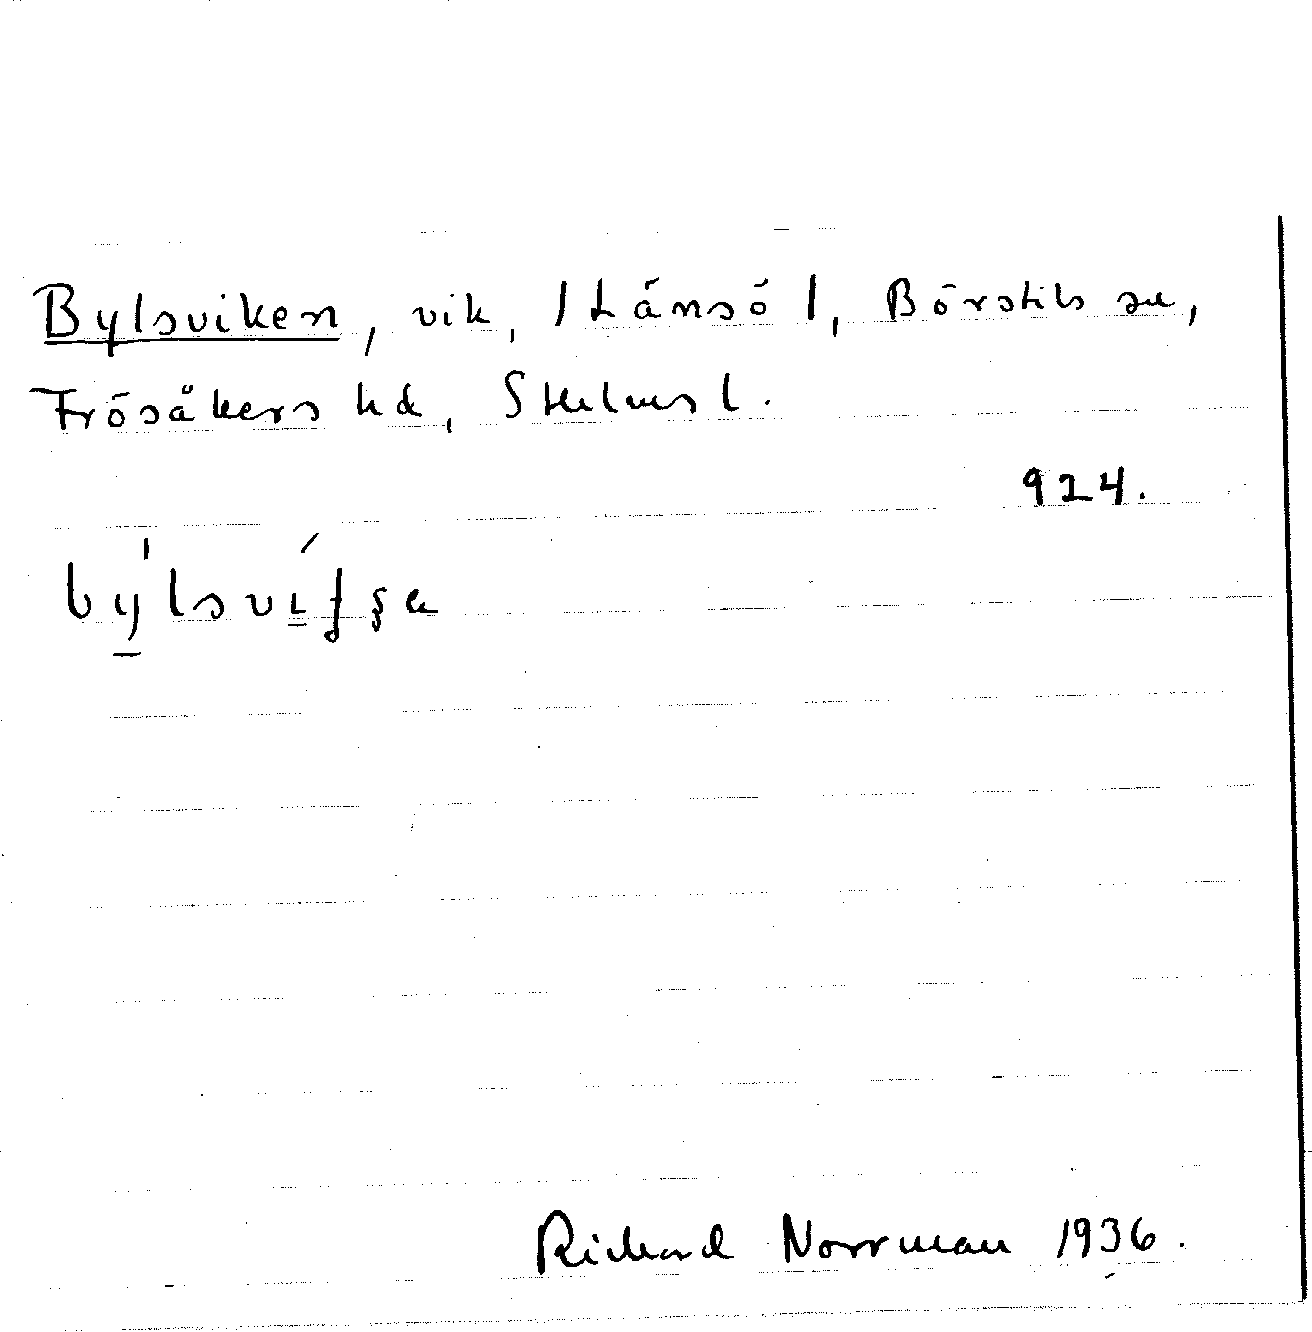 Bylsviken, vik, /Länsö/, Börstils sn,
Frösåkers hd, Sthlms l.
924.
Richard Norrman 1936.